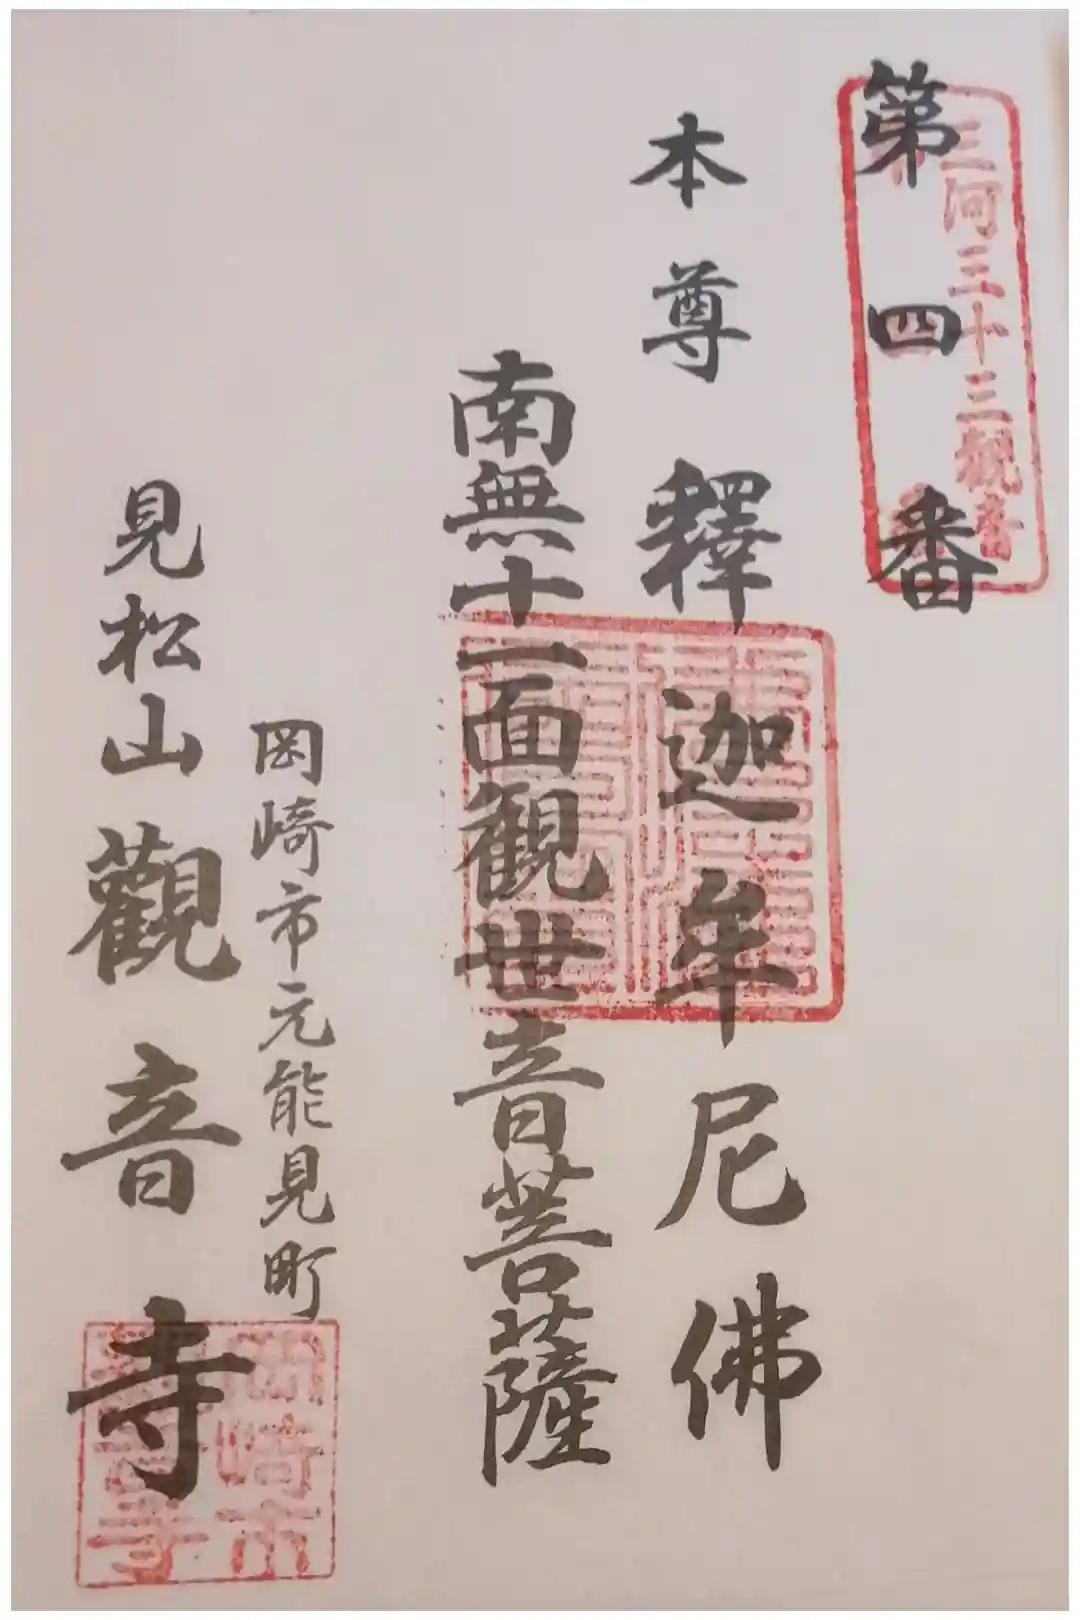 三河三十三観音
第四番
本尊釋迦牟尼佛
南無十一面観世音菩薩
岡崎市元能見町
見松山觀音寺
岡崎市
觀音寺